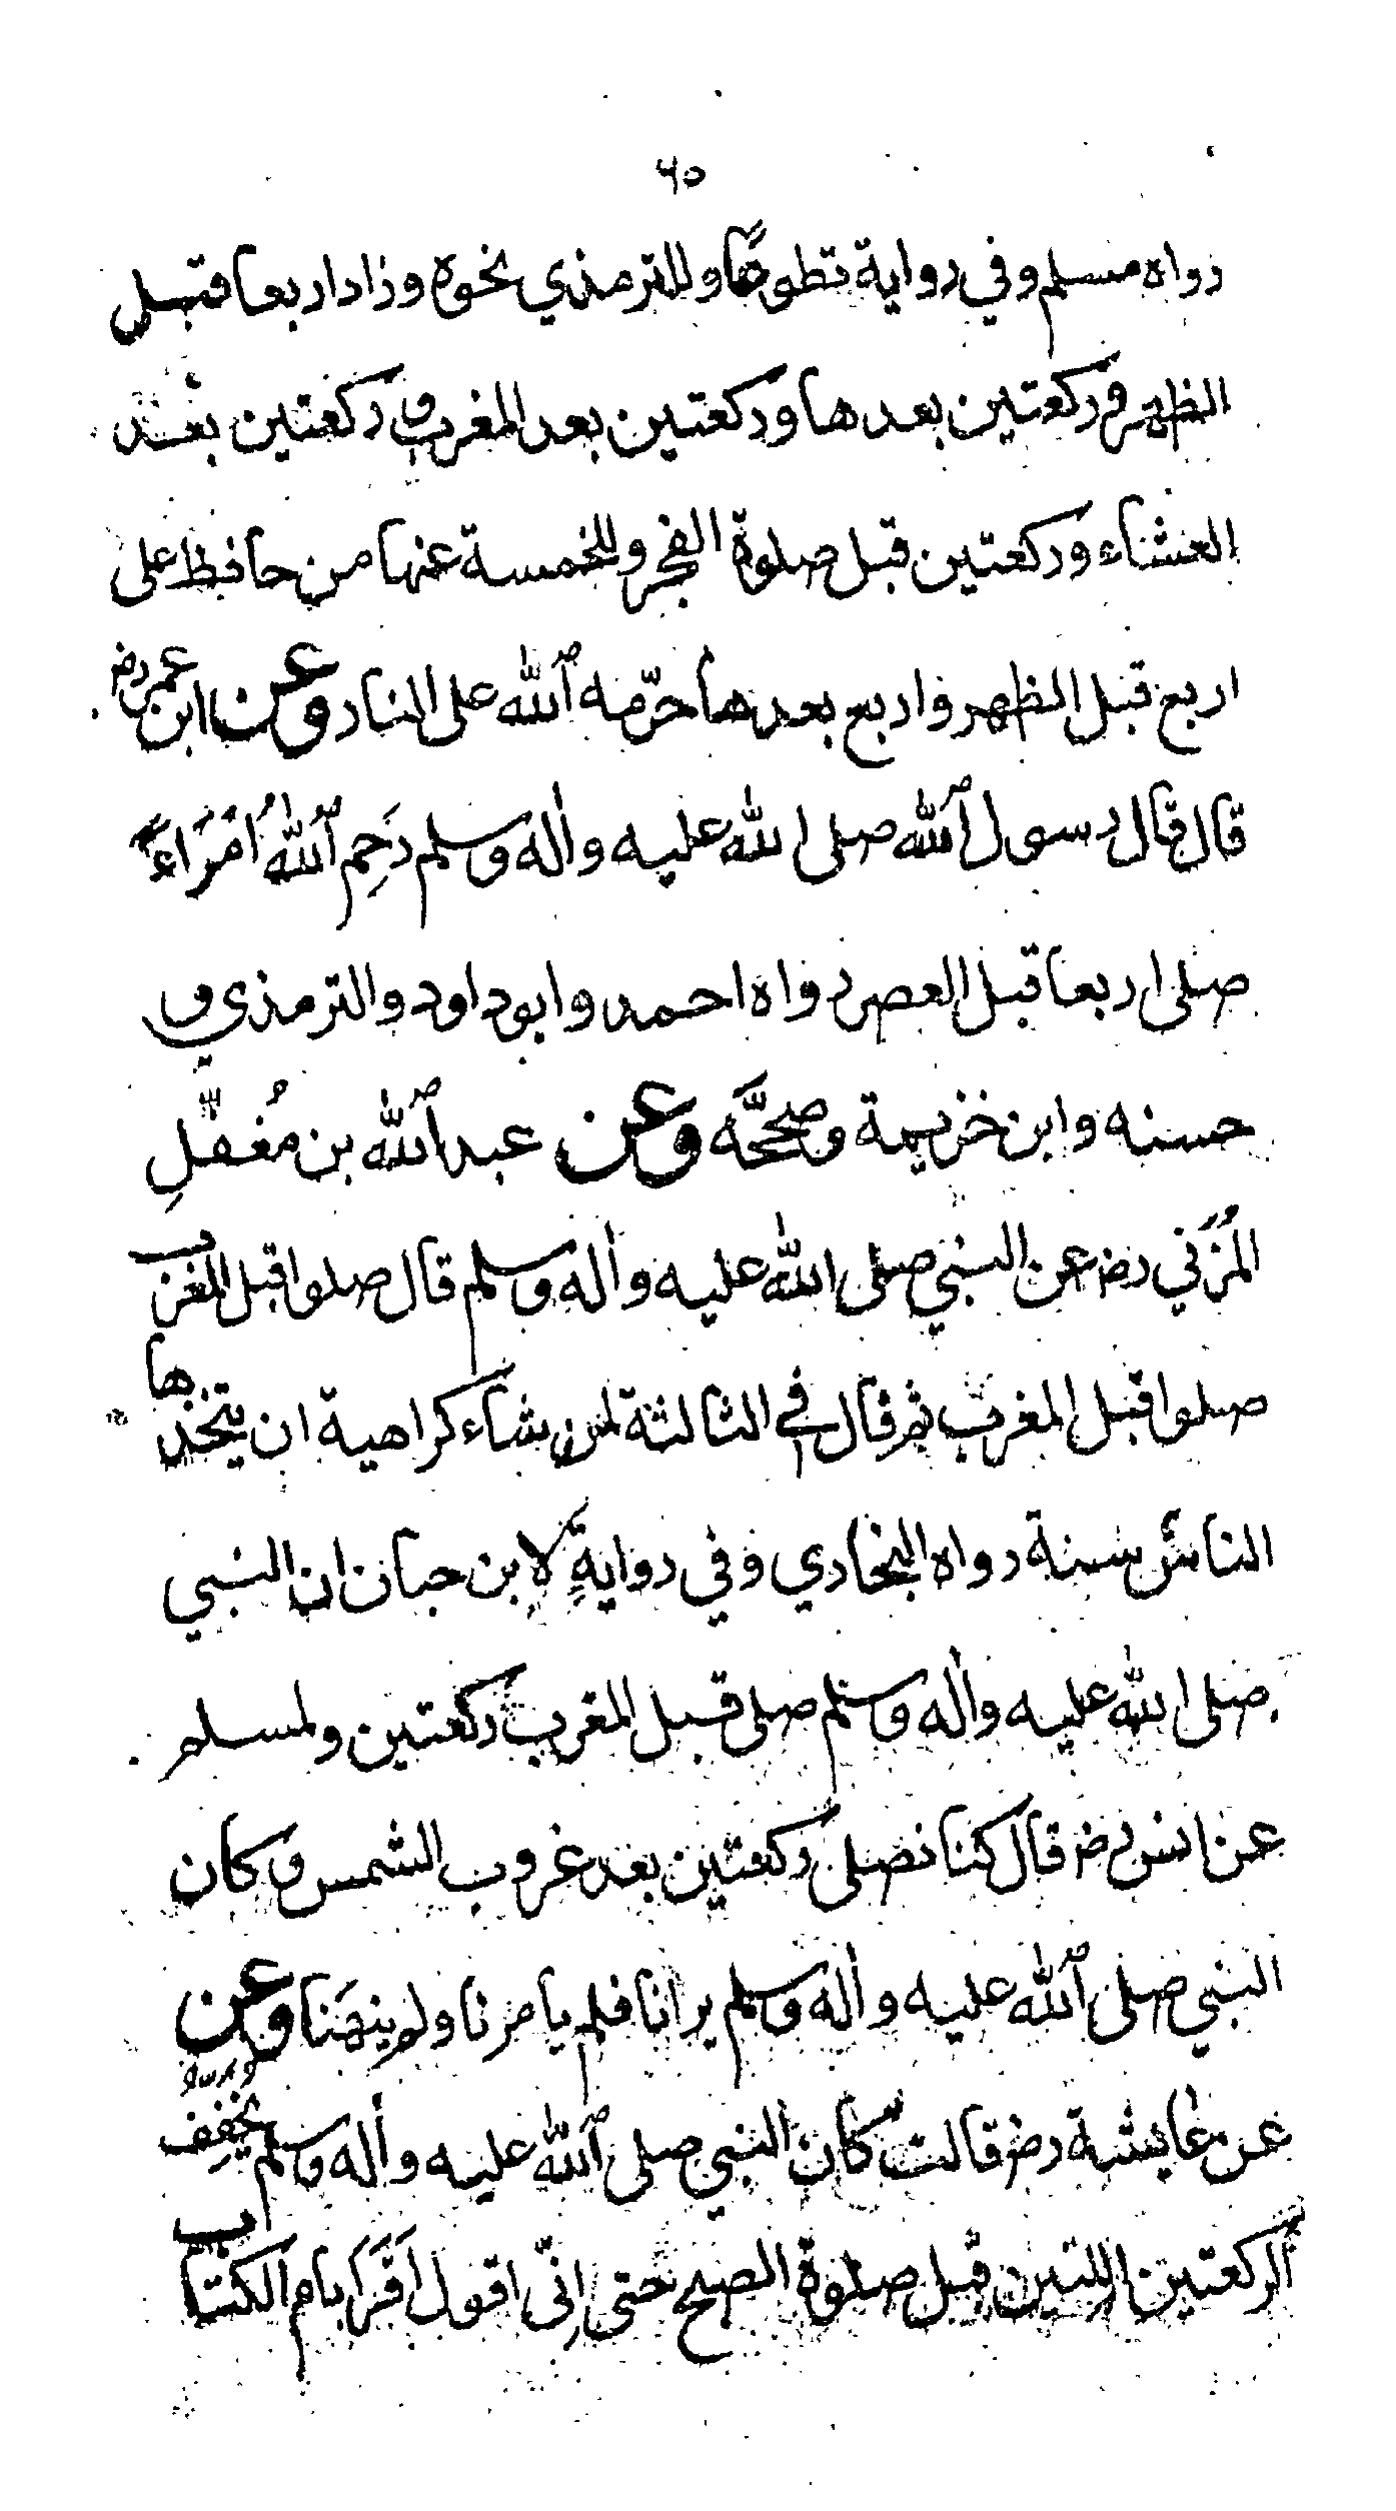 ٦٥
رواه مسلم وفي رواية تطوعًا وللترمذي نحوه وزاد اربعا قبل
الظهر وركعتين بعدها وركعتين بعد المغرب وركعتين بعد
العشاء وركعتين قبل صلوة الفجر وللخمسة عنها من حافظ على
اربع قبل الظهر واربع بعدها حرّمه الله على النار وعن ابن عمر رض
قال قال رسول الله صلى الله عليه واله وسلم رَحِم اللهُ امْرَاءً
صلى اربعا قبل العصر رواه احمد وابو داود والترمذي و
حسنه وابن خزيمة وصححَّه وعن عبد الله بن مُغفّلِ
المُزَني رض عن النبي صلى الله عليه واله وسلم قال صلوا قبل المغرب
صلوا قبل المغرب ثم قال في الثالثة لمن شاء كراهية ان يتخذها
الناس سنة رواه البخاري وفي روايةٍ لابن حبان ان النبي
صلى الله عليه واله وسلم صلى قبل المغرب ركعتين ولمسلم
عن انس رض قال كنا نصلى ركعتين بعد غروب الشمس وكان
النبي صلى الله عليه واله وسلم يرانا فلم يامرنا ولم ينهَنا وعن
عن عايشة رض قالت كان النبي صلى الله عليه واله وسلم يخفِف
الركعتين اللتين قبل صلوة الصبح حتى اِنّى اقول اَقَرَا بام الكتاب